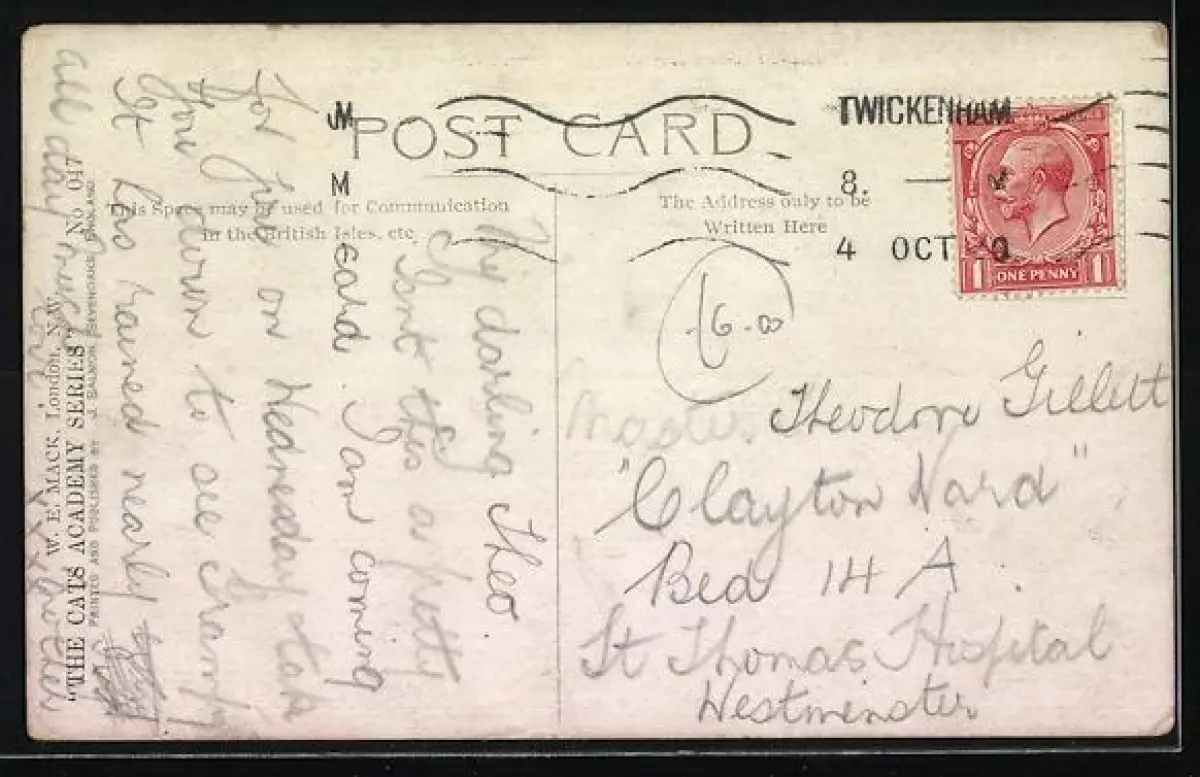 POST CARD
This Space may be used for Communication
in the British Isles, etc
The Address only to be
Written Here
TWICKENHAM
8.
4 OCT
ONE PENNY
1 1
M
M
My darling Theo
Isn't this a pretty
card. I am coming
for you on Wednesday
You to see Grampy
It has rained nearly
all day
love
Mother
x x x
16-00
Master Theodore Gillett
"Clayton Ward"
Bed 14 A.
St Thomas Hospital
Westminster
W. E. MACK, London, N.W.
"THE CATS ACADEMY SERIES" No 017
PRINTED AND PUBLISHED BY J. SALMON, SEVENOAKS, ENGLAND